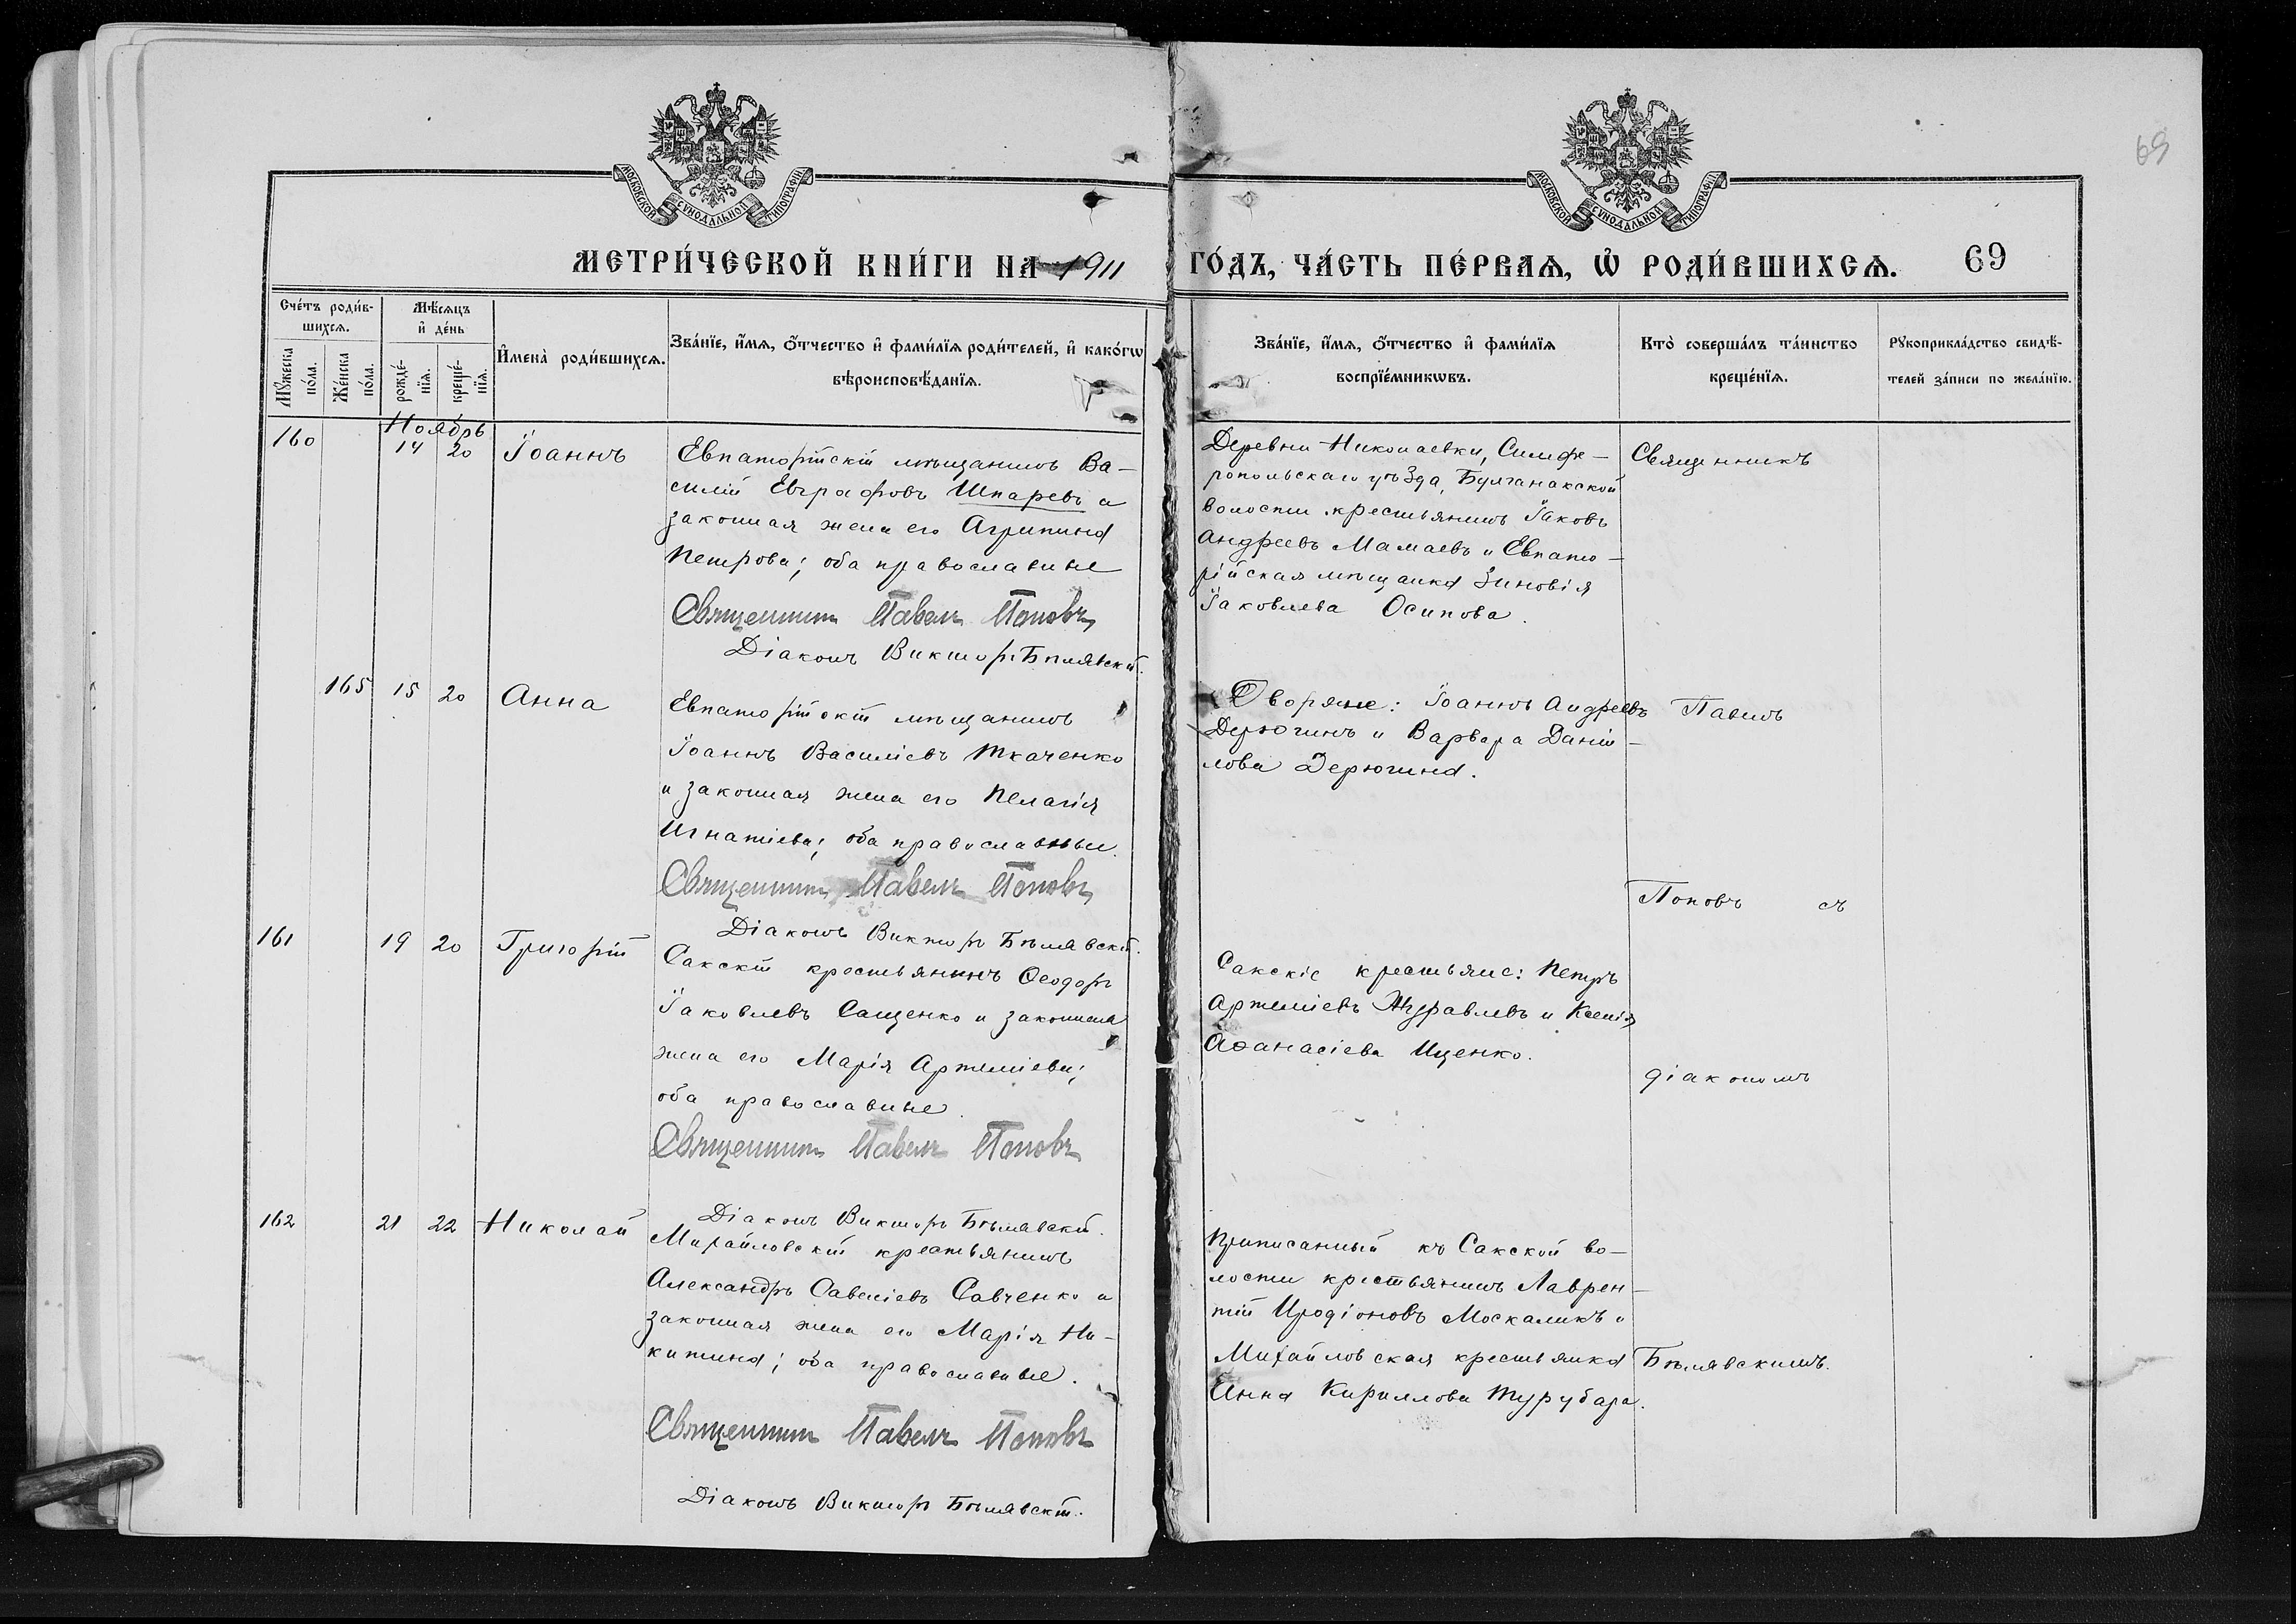 69
МОСКОВСКОЙ СѴНОДАЛЬНОЙ ТИПОГРАФІИ
МОСКОВСКОЙ СѴНОДАЛЬНОЙ ТИПОГРАФІИ
МЕТРИ́ЧЕСКОЙ КНИ́ГИ НА 1911 ГО́ДЪ, ЧА́СТЬ ПЕ́РВАѦ, Ѡ҆ РОДИ́ВШИХСѦ. 69
Сче́тъ роди́в-
шихсѧ.
Мꙋ́жеска по́ла.
Же́нска по́ла.
Мѣ́сѧцъ
и҆ де́нь
рожде́-
нїѧ.
креще́-
нїѧ.
И҆мена̀ роди́вшихсѧ.
Зва́нїе, и҆́мѧ, ѻ҆́тчество и҆ фами́лїѧ роди́телей, и҆ како́гѡ
вѣроисповѣ́данїѧ.
Зва́нїе, и҆́мѧ, ѻ҆́тчество и҆ фами́лїѧ
воспрїе́мникѡвъ.
Кто̀ соверша́лъ та́инство
креще́нїѧ.
Рꙋкоприкла́дство свидѣ́-
телей за́писи по жела́нїю.
Ноябрь
160 14 20 Іоаннъ
Евпаторійскій мѣщанинъ Ва-
силій Евграфовъ Шпаревъ и
законная жена его Агрипина
Петрова; оба православные
Священникъ Павелъ Поповъ
Діаконъ Викторъ Бѣлявскій.
Деревни Николаевки, Симфе-
ропольскаго уѣзда, Булганакской
волости крестьянинъ Іаковъ
Андреевъ Мамаевъ и Евпато-
рійская мѣщанка Зиновія
Іаковлева Осипова.
Священникъ
165 15 20 Анна
Евпаторійскій мѣщанинъ
Іоаннъ Василіевъ Ткаченко
и законная жена его Пелагія
Игнатіева; оба православные.
Священникъ Павелъ Поповъ
Діаконъ Викторъ Бѣлявскій.
Дворяне: Іоаннъ Андреевъ
Дерюгинъ и Варвара Даніи-
лова Дерюгина.
Павелъ
Поповъ съ
161 19 20 Григорій
Сакскій крестьянинъ Ѳеодоръ
Іаковлевъ Сащенко и законная
жена его Марія Артеміева;
оба православные.
Священникъ Павелъ Поповъ
Діаконъ Викторъ Бѣлявскій.
Сакскіе крестьяне: Петръ
Артеміевъ Журавлевъ и Ксенія
Аѳанасіева Ищенко.
діакономъ
162 21 22 Николай
Михайловскій крестьянинъ
Александръ Савеліевъ Савченко и
законная жена его Марія Ни-
китина; оба православные.
Священникъ Павелъ Поповъ
Діаконъ Викторъ Бѣлявскій.
Приписанный къ Сакской во-
лости крестьянинъ Лаврен-
тій Иродіоновъ Москаликъ и
Михайловская крестьянка
Анна Кириллова Турубара.
Бѣлявскимъ.